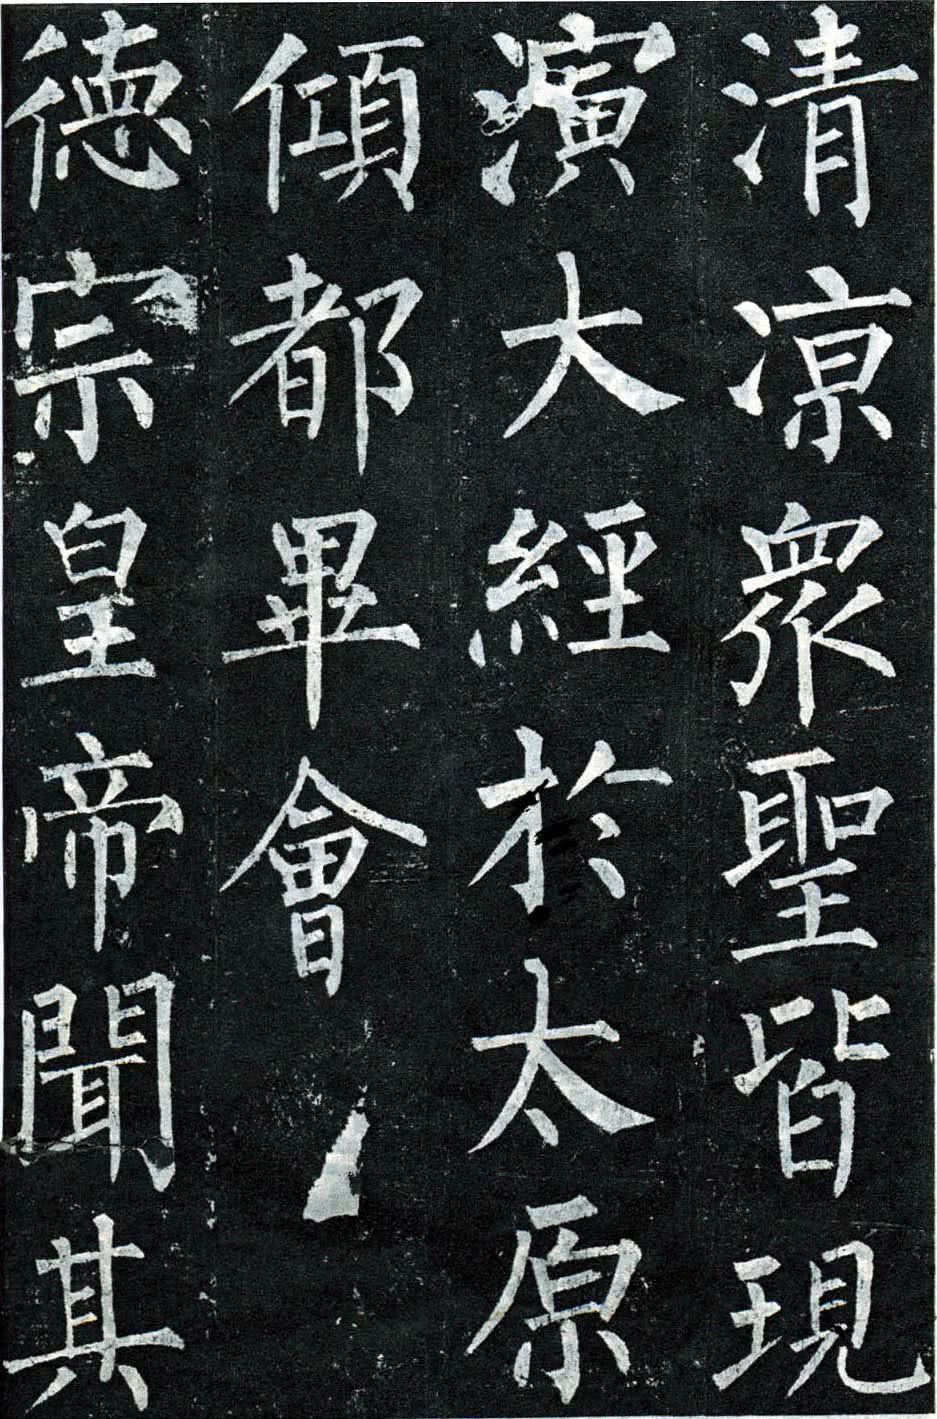 清涼衆聖皆現
演大經於太原
傾都畢會
德宗皇帝聞其